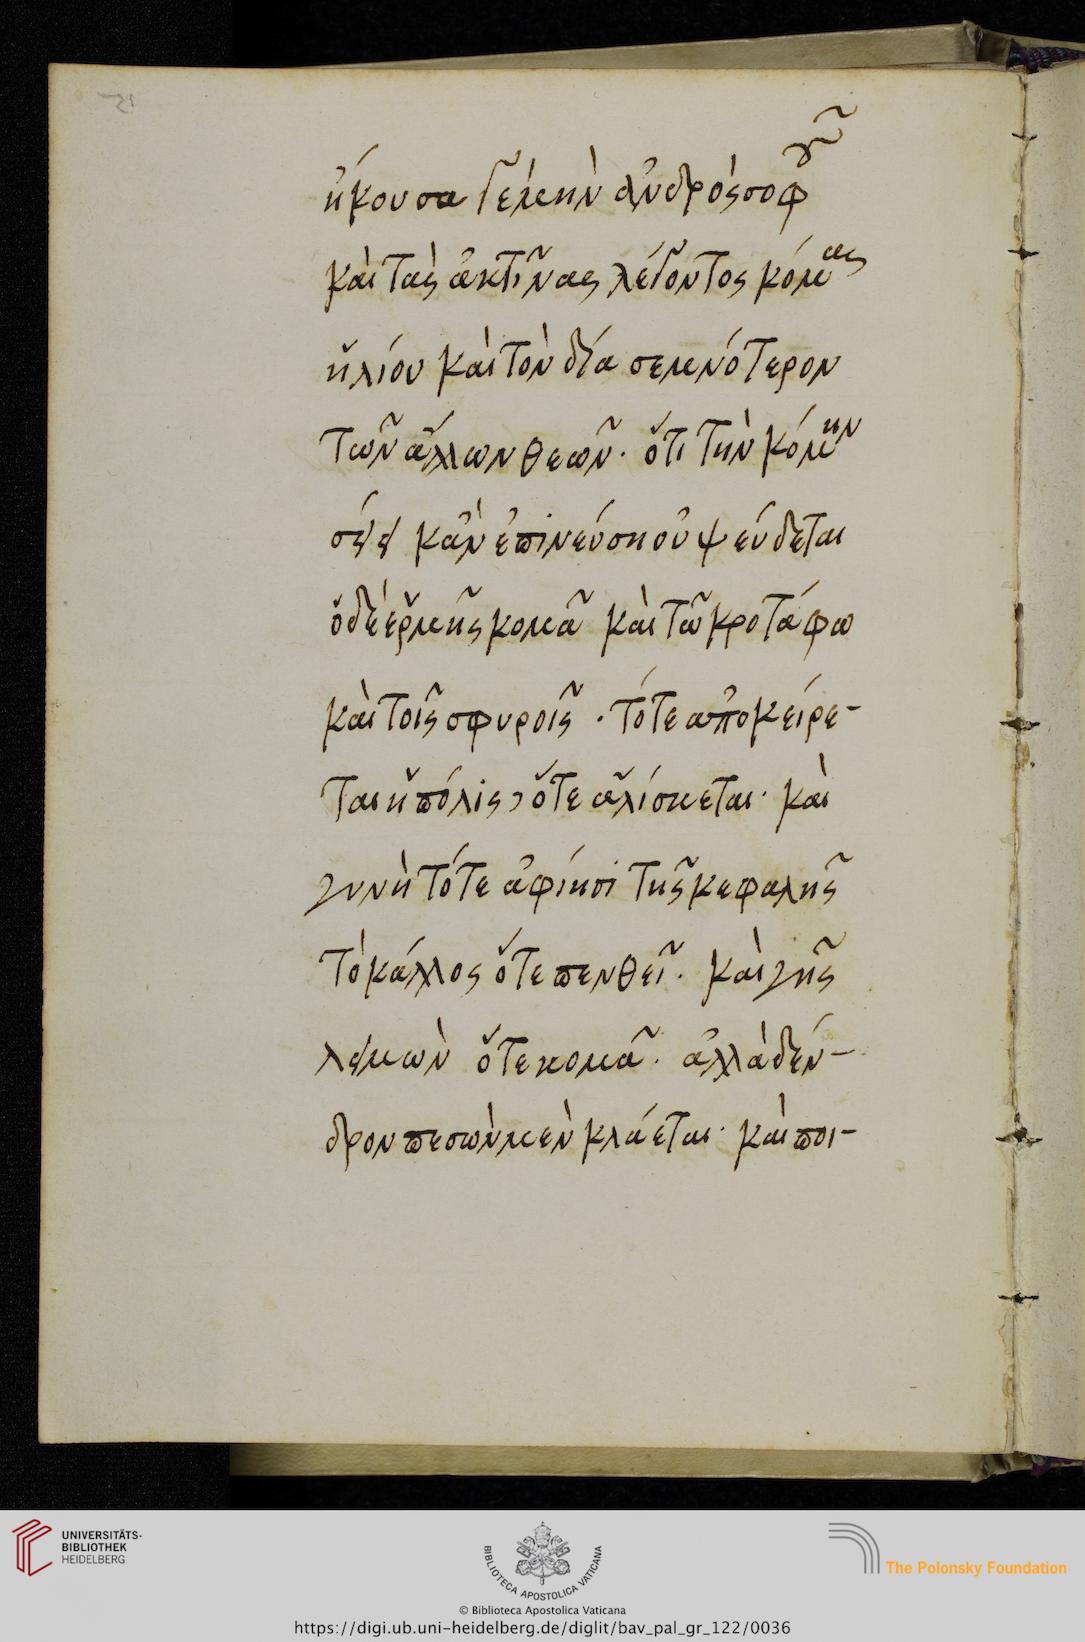 ἤκουσα δ' ἐμὴν ἀνδρὸς σοφοῦ
καὶ τὰς ἀκτῖνας λέγοντος κόμας
ἡλίου καὶ τὸν δία σεμνότερον
τῶν ἄλλων θεῶν· ὅτι τὴν κόμην
σείει κἂν ἐπινεύση οὐ ψεύδεται
ὁ δὲ ἑρμῆς κομᾶ καὶ τῶ κροτάφω
καὶ τοῖς σφυροῖς· τότε ἀποκείρε-
ται ἡ πόλις, ὅτε ἁλίσκεται· καὶ
γυνὴ τότε ἀφίησι τῆς κεφαλῆς
τὸ κάλλος ὅτε πενθεῖ· καὶ γῆς
λειμὼν ὅτε κομᾶ· ἀλλὰ δέν-
δρον πεσὼν μὲν κλάεται· καὶ ποι-
UNIVERSITÄTS-
BIBLIOTHEK
HEIDELBERG
BIBLIOTECA APOSTOLICA VATICANA
The Polonsky Foundation
© Biblioteca Apostolica Vaticana
https://digi.ub.uni-heidelberg.de/diglit/bav_pal_gr_122/0036